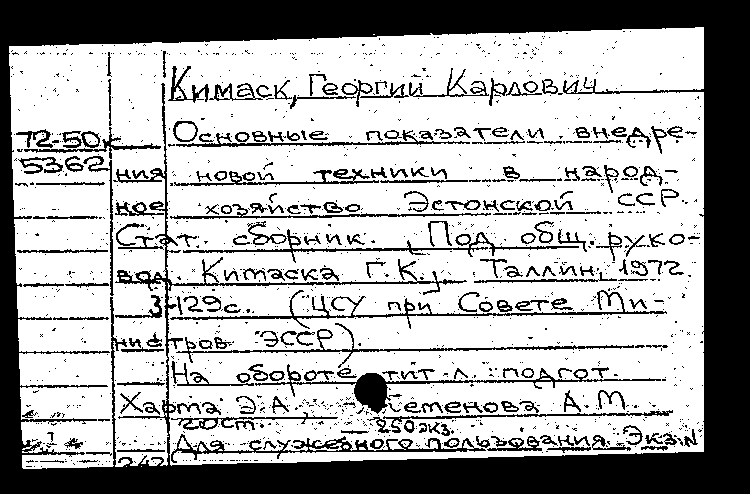 Кимаск, Георгий Карлович
72-50к Основные показатели внедре-
5362 ния новой техники в народ-
ное хозяйство Эстонской ССР
Стат. сборник. , Под общ. руко-
вод. Кимаска Г.К., Таллин, 1972.
129с. (ЦСУ при Совете Ми-
нистров ЭССР)
На обороте тит. л. : подгот.
Харта Э.А., А.М.
20 ст. — 250 экз.
Для служебного пользования. Экз. N
242